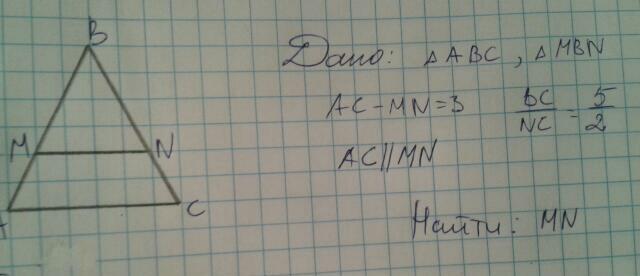 B
M N
A C
Дано: △ABC, △MBN
AC-MN=3 BC/NC=5/2
AC||MN
Найти: MN